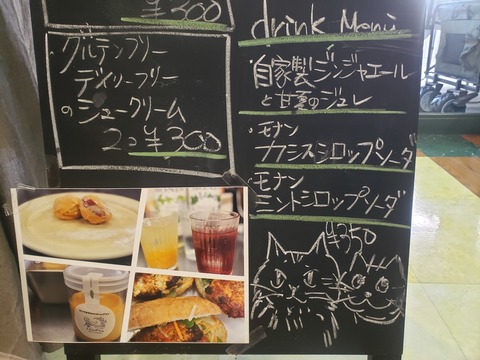 ¥300
・グルテンフリー
デイリーフリー
のシュークリーム
2コ ¥300
drink Menu
・自家製ジンジャエール
と甘夏のジュレ
・モナン
カシスシロップソーダ
・モナン
ミントシロップソーダ
¥350